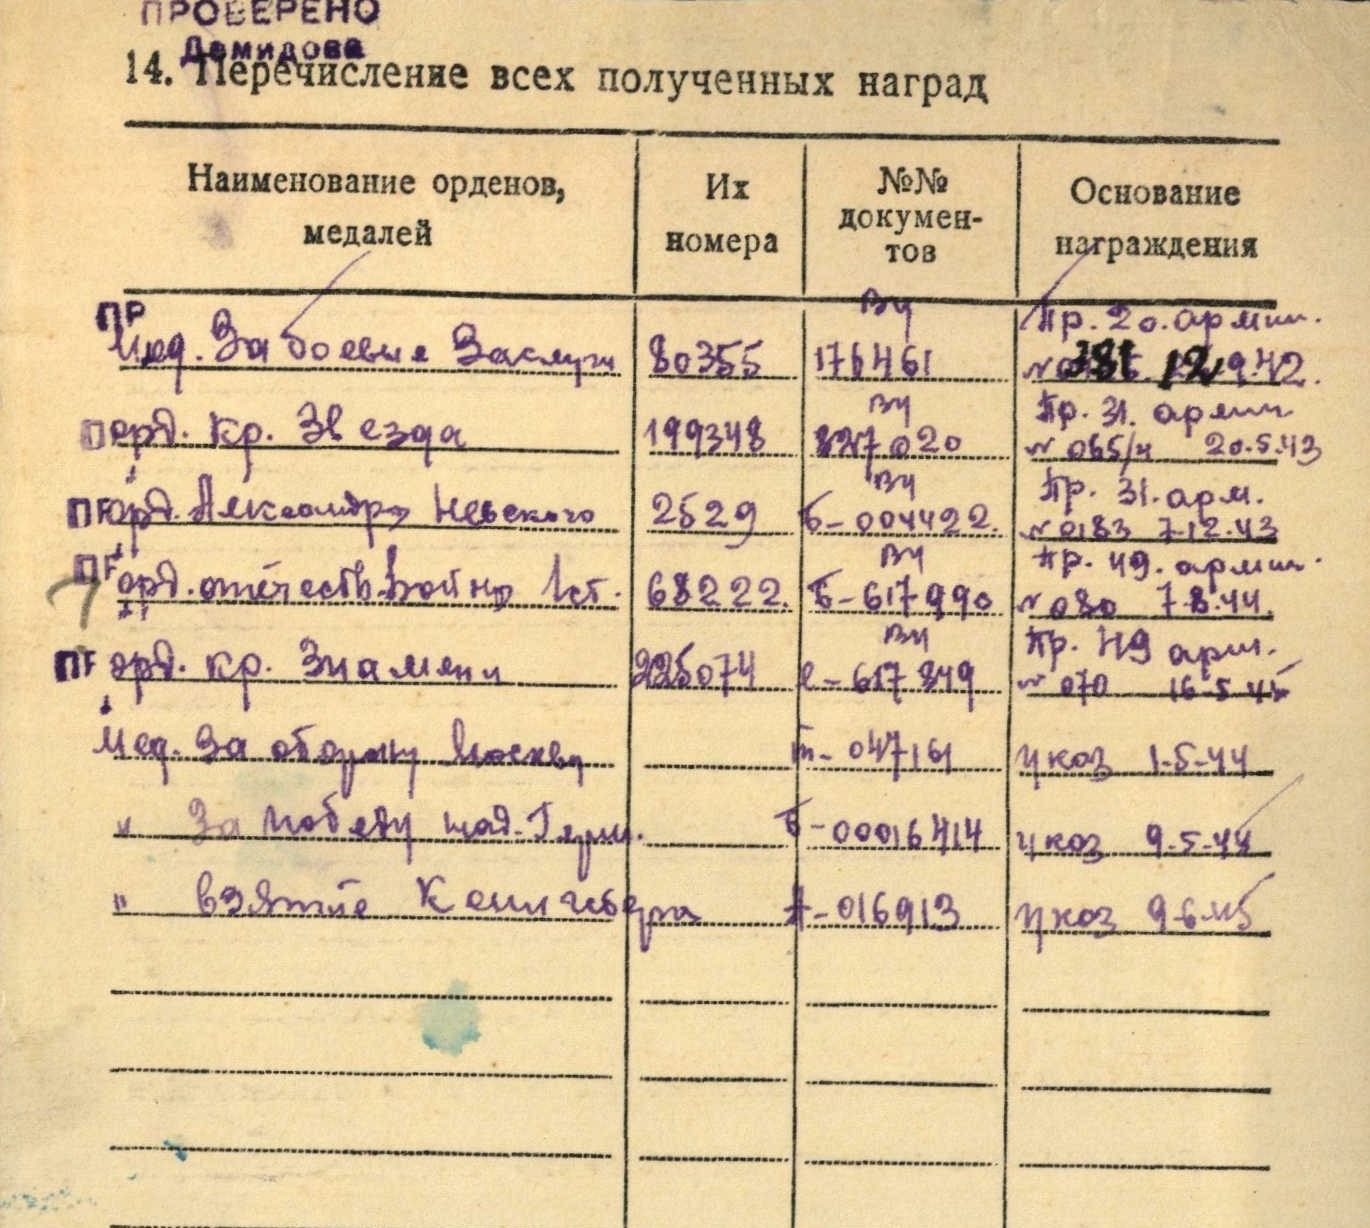 ПРОВЕРЕНО
Демидова
14. Перечисление всех полученных наград
Наименование орденов, медалей
Их номера
№№ докумен-тов
Основание награждения
ПР
Мед. За боевые Заслуги 80355 ВЧ 176461 Пр. 20. армии.
№ 381 12 9.42.
орд. Кр. Звезда 199348 ВЧ 827020 Пр. 31. армии
№ 065/н 20.5.43
орд. Александра Невского 2529 ВЧ Б-004422. Пр. 31. арм.
№ 0183 7-12.43
орд. отечеств. Войны 1 ст. 68222. ВЧ Б-617990 Пр. 49. армии.
№ 080 7-8.44.
орд. Кр. Знамени 225074 ВЧ е-617849 Пр. 49 арм.
№ 070 16-5-45
Мед. За оборону Москвы т-047161 указ 1-5-44
" За победу над. Герм. Б-00016414 указ 9-5-44
" взятие Кенигсберга А-016913 указ 9-6-45